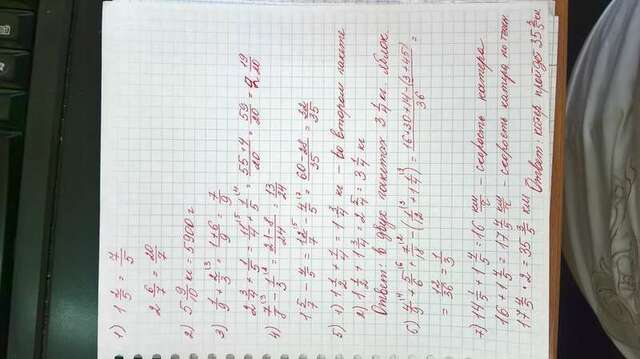 1) 1 2/5 = 7/5
2 6/7 = 20/7
2) 5 9/10 кг = 5900 г
3) 1/9 + 2/3 \3 = 1+6/9 = 7/9
2 3/4 + 1/5 = 11/4 \5 + 1/5 \4 = 55+4/20 = 59/20 = 2 19/20
4) 7/8 \3 - 1/3 \8 = 21-8/24 = 13/24
1 5/7 - 4/5 = 12/7 \5 - 4/5 \7 = 60-28/35 = 32/35
5) 1) 1 1/2 + 1/4 = 1 3/4 кг - во втором пакете
2) 1 1/2 + 1 3/4 = 2 5/4 = 3 1/4 кг
Ответ: в двух пакетах 3 1/4 кг. яблок.
6) 4/9 \4 + 5/6 \6 + 7/18 \2 - (1/12 \3 + 1 1/4 \9) = 16+30+14-(3+45)/36 =
= 12/36 = 1/3
7) 14 1/5 + 1 4/5 = 16 км/ч - скорость катера
16 + 1 4/5 = 17 4/5 км/ч - скорость катера по течен
17 4/5 · 2 = 35 3/5 км
Ответ: катер пройдет 35 3/5 км.